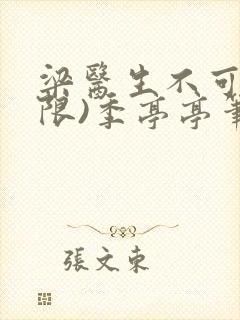 梁醫生不可
限)季亭亭筆
張文東